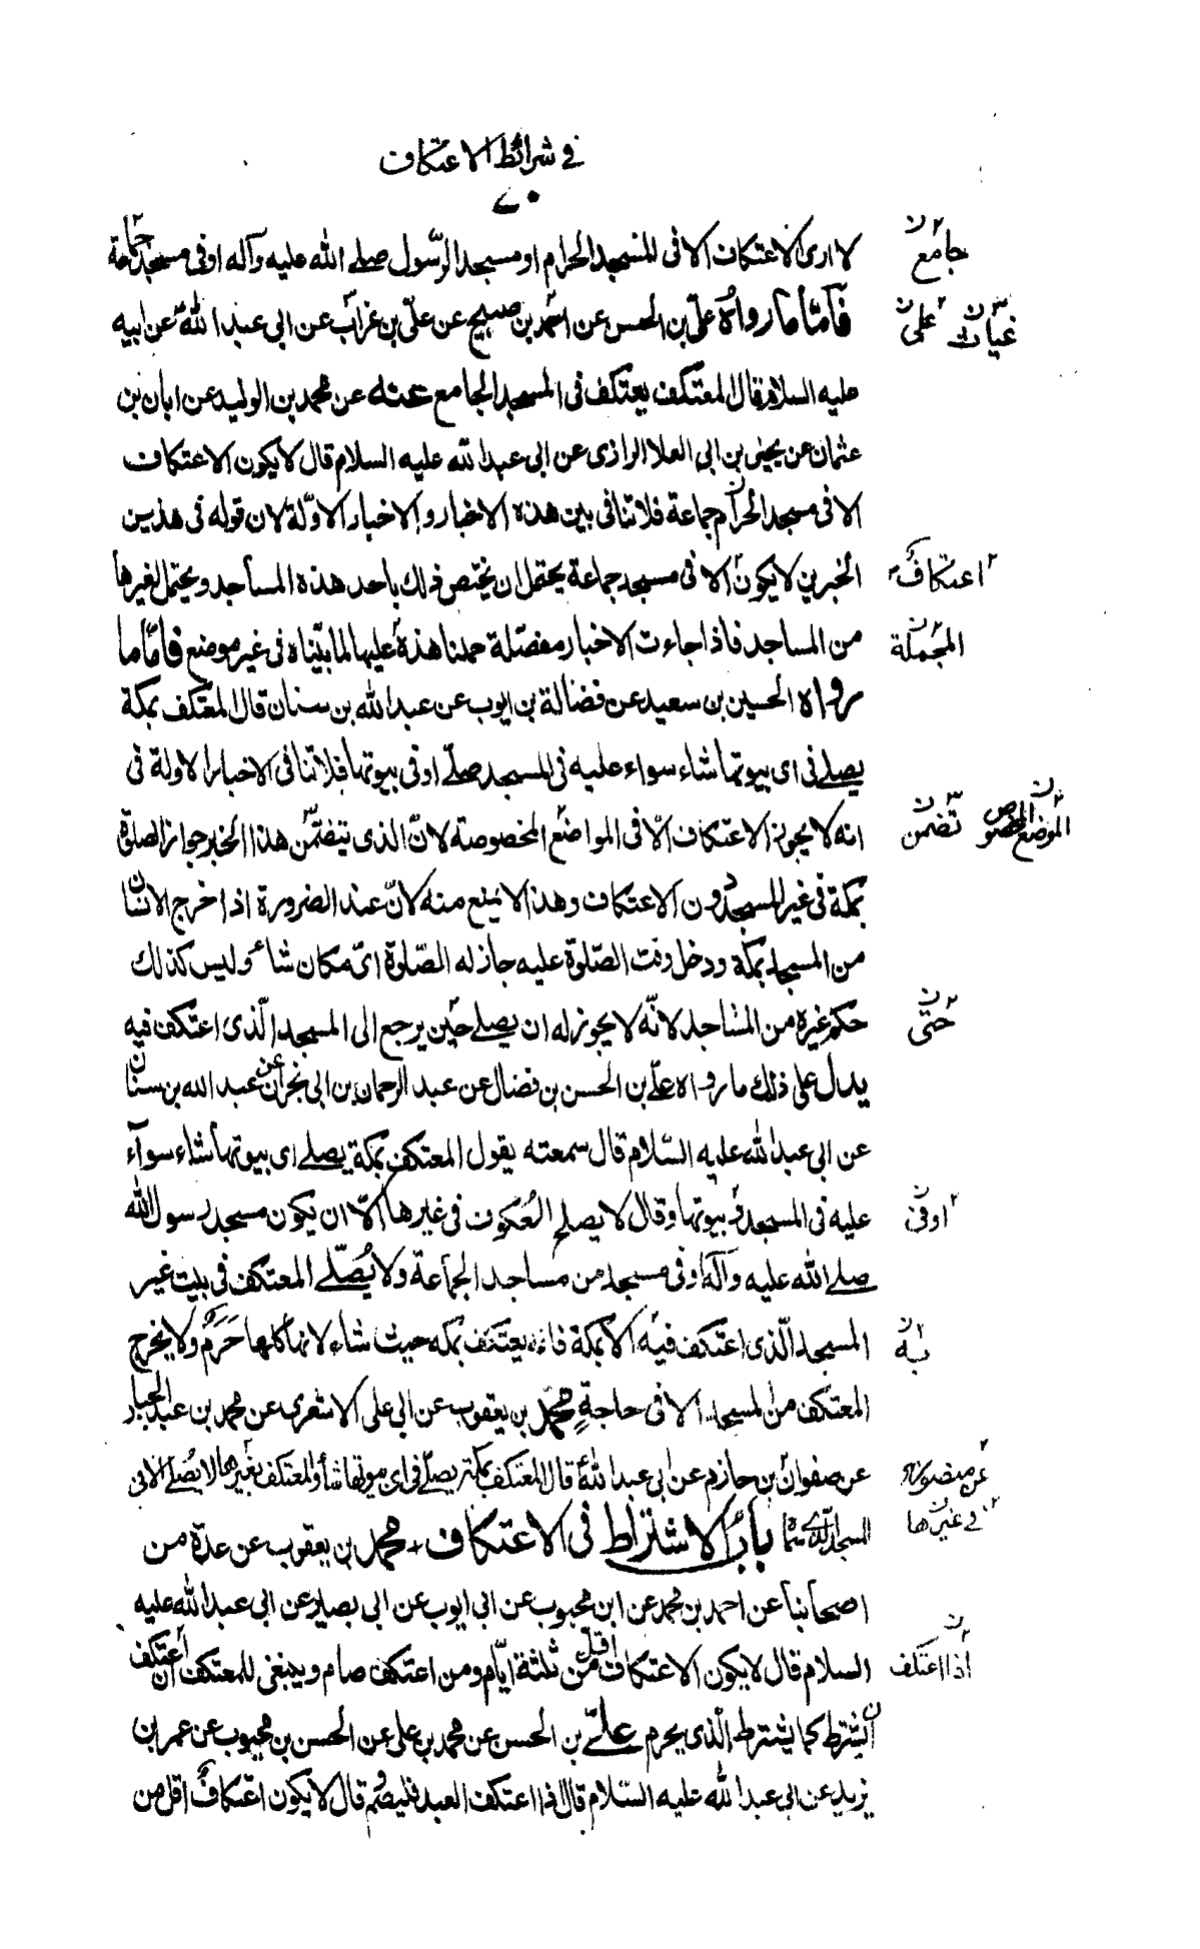 في شرائط الاعتكاف
٧٠
لا ارى الاعتكاف الا فى المسجد الحرام او مسجد الرّسول صلے الله عليه وآله او فى مسجد جماعة
جامع ن
فامّا ما رواه علىّ بن الحسن عن احمد بن صبيح عن علىّ بن غراب عن ابى عبد الله عن ابيه
غياث ن على ن
عليه السلام قال المعتكف يعتكف فى المسجد الجامع عنه عن محمد بن الوليد عن ابان بن
عثمان عن يحيى بن ابى العلا الرازى عن ابى عبد الله عليه السلام قال لا يكون الاعتكاف
الا فى مسجد الحرام جماعة فلا تنافى بين هذه الاخبار والاخبار الاوّلة لان قوله فى هذين
الخبرين لا يكون الا فى مسجد جماعة يحتمل ان يختص ذلك باحد هذه المساجد ويحتمل غيرها
اعتكاف
من المساجد فاذا جاءت الاخبار مفصّلة حملنا هذه عليها لما بيّنّاه فى غير موضع فامّا ما
المجملة ن
رواه الحسين بن سعيد عن فضالة بن ايوب عن عبد الله بن سنان قال المعتكف بمكة
يصلے فى اى بيوتها شاء سواء عليه فى المسجد صلّے او فى بيوتها فلا تنافى الاخبار الاولة فى
انه لا يجوز الاعتكاف الّا فى المواضع المخصوصة لانّ الذى يتضمّن هذا الخبر جواز الصلوة
الموضع المخصوص ن تضمن ن
بمكة فى غير المسجد دون الاعتكاف وهذا لا يمنع منه لانّ عند الضرورة اذا خرج الانسان
من المسجد بمكة ودخل وقت الصّلوة عليه جاز له الصّلوة اىّ مكان شاء وليس كذلك
حكم غيره من المساجد لانّه لا يجوز له ان يصلے حين يرجع الى المسجد الّذى اعتكف فيه
حتى ن
يدل على ذلك ما رواه علىّ بن الحسن بن فضال عن عبد الرحمان بن ابى نجران عن عبد الله بن سنان
عن ابى عبد الله عليه السّلام قال سمعته يقول المعتكف بمكة يصلے اى بيوتها شاء سوآء
عليه فى المسجد و بيوتها وقال لا يصلح العُكوف فى غيرها الّا ان يكون مسجد رسول الله
او فى ن
صلے الله عليه وآله او فى مسجد من مساجد الجماعة ولا يُصَلّے المعتكف فى بيت غير
المسجد الّذى اعتكف فيه الا بمكة فانه يعتكف بمكه حيث شاء لانها كلها حَرَم ولا يخرج
به ن
المعتكف من المسجد الا فى حاجةٍ محمّد بن يعقوب عن ابى على الاشعرى عن محمد بن عبد الجبار
عن صفوان بن حازم عن ابى عبد الله قال المعتكف بمكة يصلّے فى اى بيوتها شاء والمعتكف بغيرها لا يصلے الا فى
عن منصور ن
المسجد الذى سمّاه باب الاشتراط فى الاعتكاف محمد بن يعقوب عن عدة من
فى غيرها
اصحابنا عن احمد بن محمد عن ابن محبوب عن ابى ايوب عن ابى بصير عن ابى عبد الله عليه
السلام قال لا يكون الاعتكاف اقل من ثلثة ايّام ومن اعتكف صام وينبغى للمعتكف ان اعتكف
اذا اعتكف ن
ان يشترط كما يشترط الّذى يحرم علىّ بن الحسن عن محمد بن على عن الحسن بن محبوب عن عمر بن
يزيد عن ابى عبد الله عليه السّلام قال اذا اعتكف العبد فليصم وقال لا يكون اعتكاف اقل من